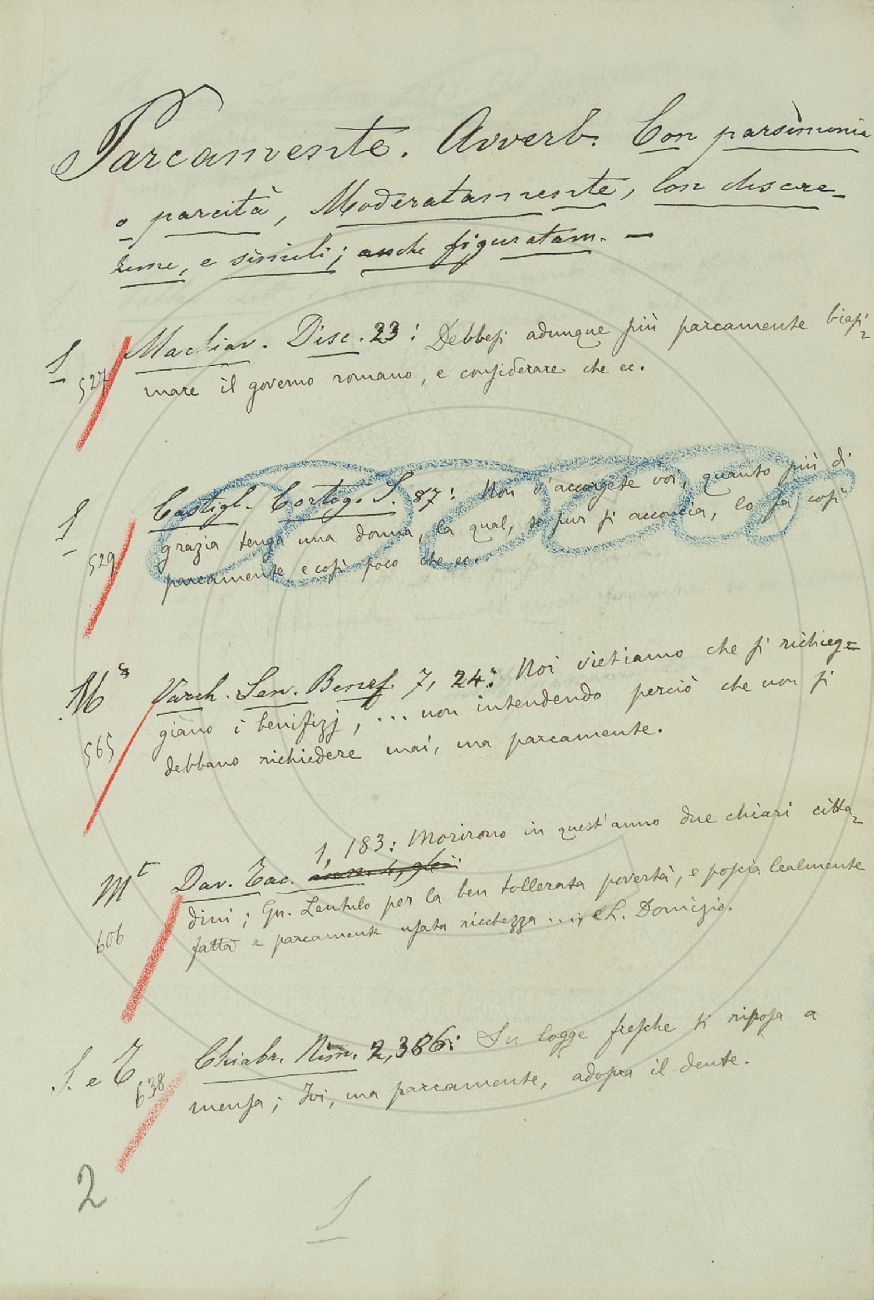 Parcamente. Avverb. Con parsimonia
o parcità, Moderatamente, Con discre-
zione, e simili; anche figuratam. —
S Machiav. Disc. 23: Debbesi adunque più parcamente biasi-
527 mare il governo romano, e considerare che ec.
S Castigl. Corteg. S. 87: Non v'accorgete voi, quanto più di
529 grazia tenga una donna, la qual, se pur si acconcia, lo fa così
parcamente e così poco che ec.
Varch. Sen. Benef. 7, 24: Noi vietiamo che si richieg-
565 giano i benifizj, ... non intendendo perciò che non si
debbano richiedere mai, ma parcamente.
Mt Dav. Tac. 1, 183: Morirono in quest'anno due chiari citta-
606 dini; Gn. Lentulo per la ben tollerata povertà, e poscia lealmente
fatta e parcamente usata ricchezza ...; e L. Domizio.
S. e T Chiabr. Rim. 2,386: Su logge fresche si riposa a
638 mensa; Ivi, ma parcamente, adopra il dente.
2
S